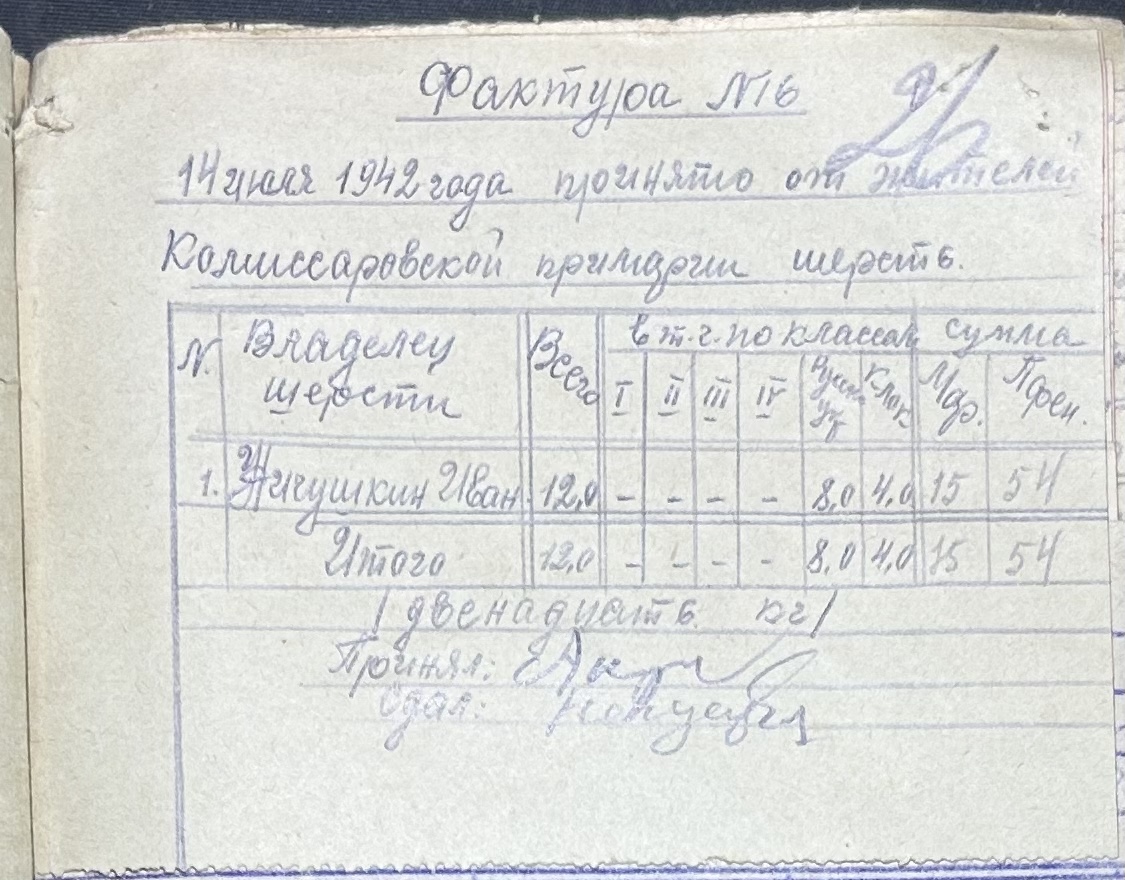 Фактура №16
26
14 июля 1942 года принято от жителей
Комиссаровской примарии шерсть.
№ Владелец шерсти Всего в т.ч. по классам сумма
I II III IV клок. Мар. Пфен.
1. Жичушкин Иван 12,0 - - - - 8,0 4,0 15 54
Итого 12,0 - - - - 8,0 4,0 15 54
/двенадцать кг/
Принял:
Сдал: